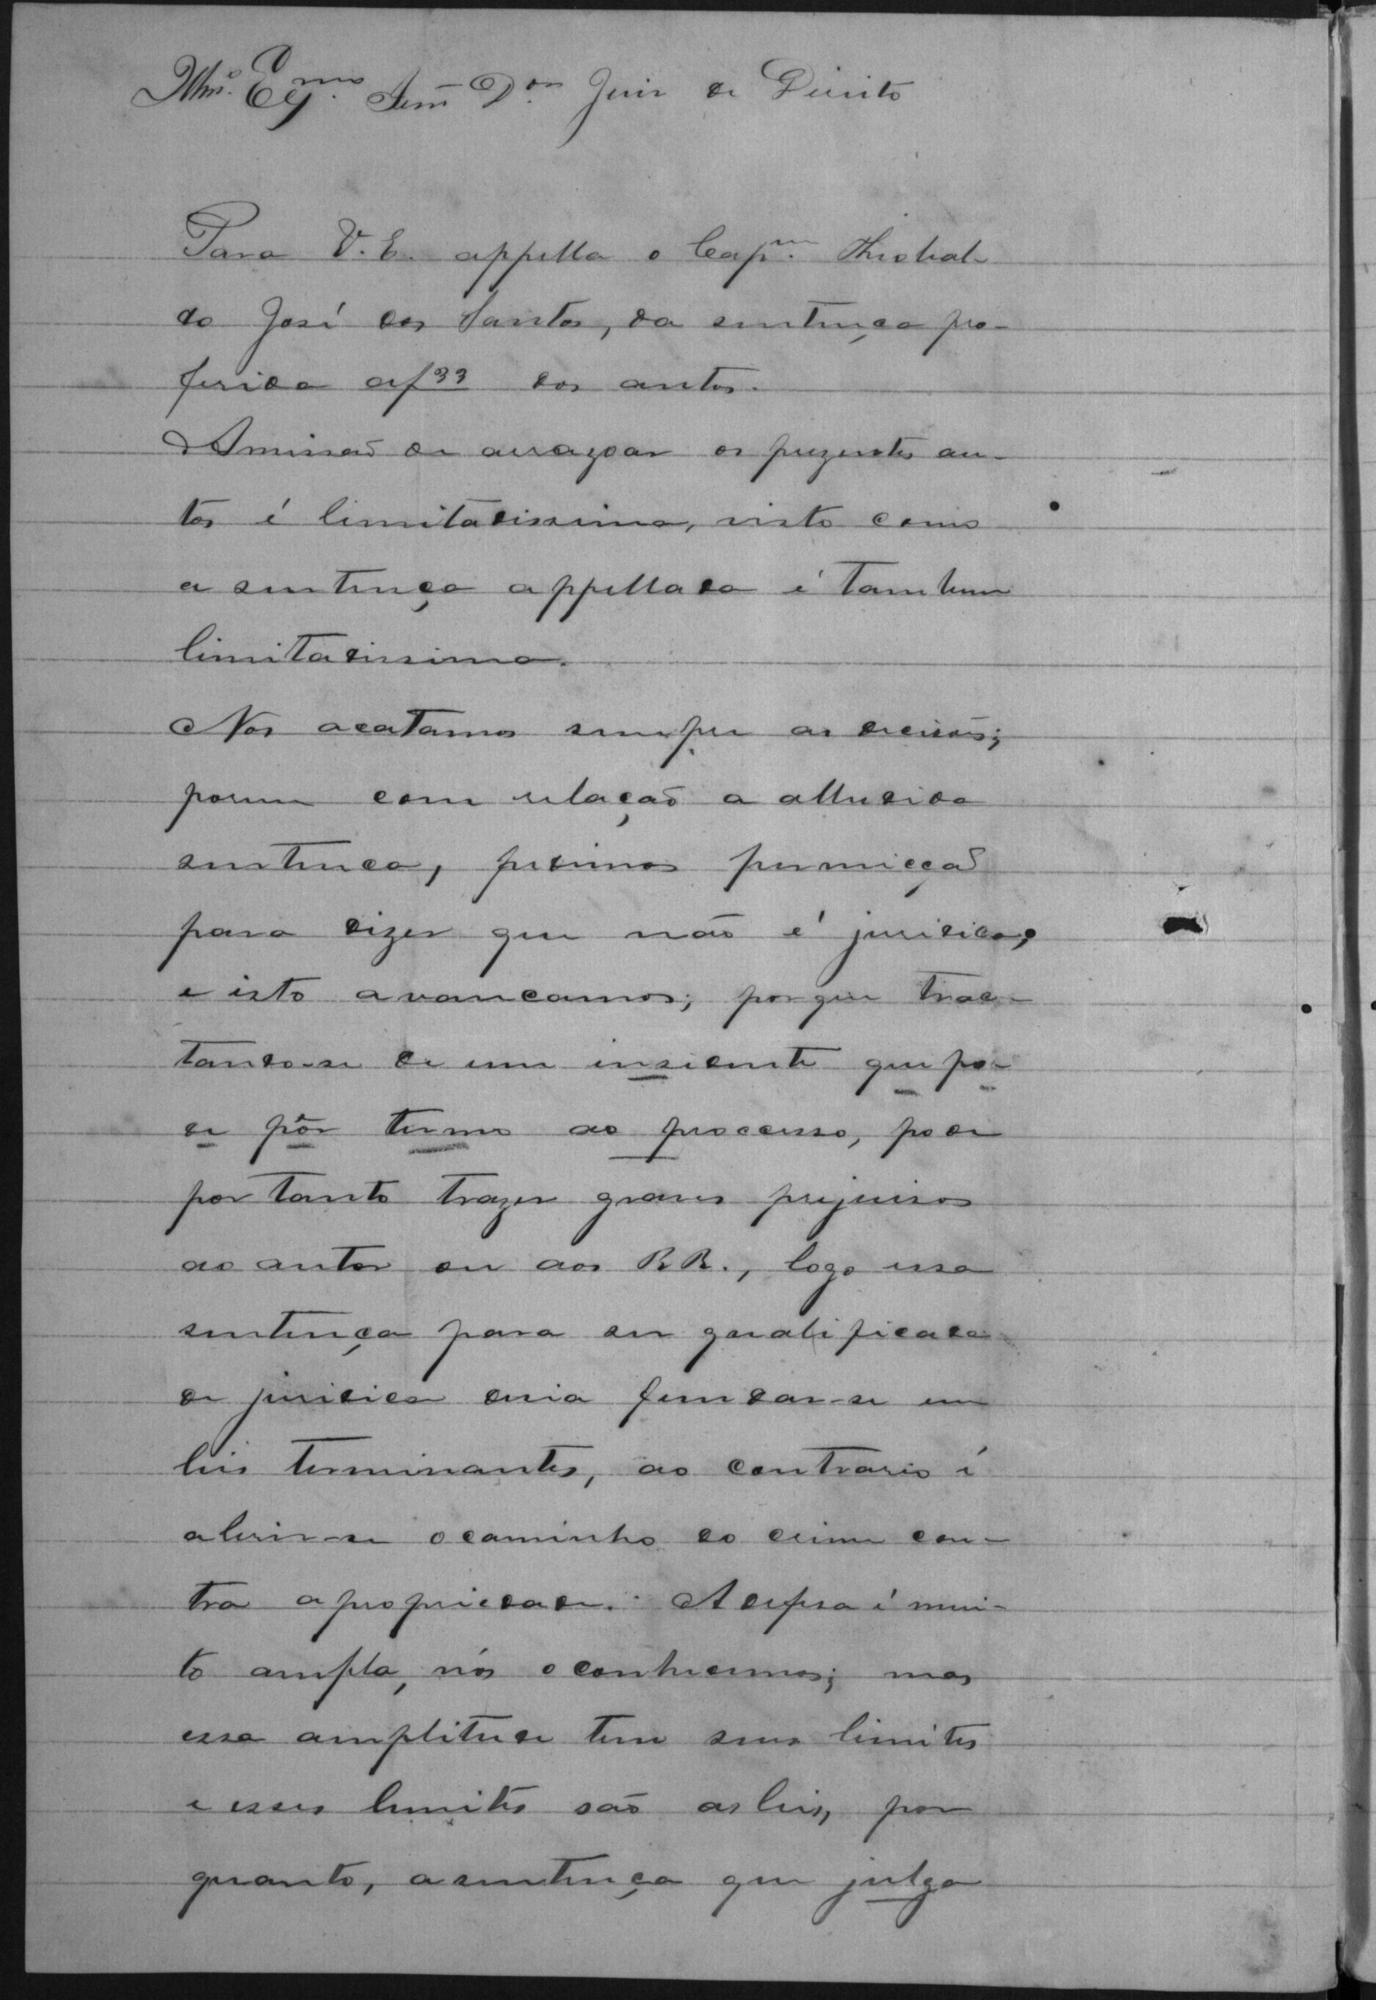 Illmo. Exmo. Senr. Dor. Juiz de Direito
Para V. E. appella o Capm. Theobal-
do José dos Santos, da sentença pro-
ferida af 33 dos autos.
A missão de arrazoar os prezentes au-
tos é limitadissima, visto como
a sentença appellada é tambem
limitadissima.
Nos acatamos sempre as decisões;
porem com relação a alludida
sentenca, pedimos permicção
para dizer que não é juridica;
e isto avancamos; porque trac-
tando-se de um insidente que po-
de pôr termo ao processo, pode
por tanto trazer graves prejuisos
ao autor ou aos RR., logo essa
sentença para ser qualificada
de juridica devia fundar-se em
leis terminantes, ao contrario é
abrir-se o caminho do crime con-
tra a propriedade. A defesa é mui-
to ampla, nós o conhecemos; mas
essa amplitude tem seus limites
e esses limites são as leis, por
quanto, a sentença que julga